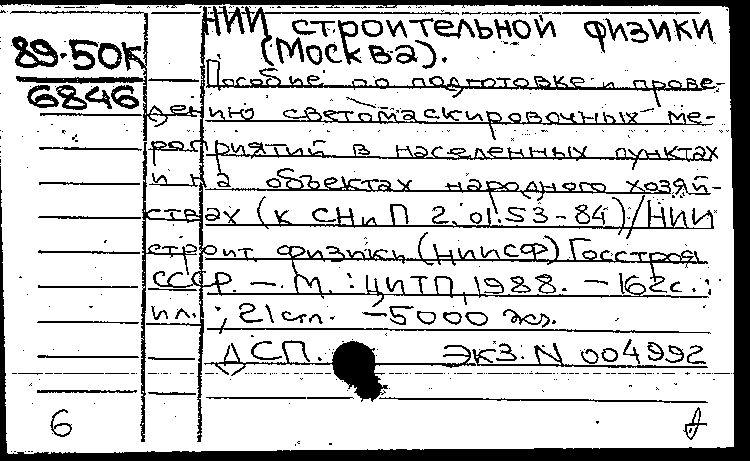 НИИ строительной физики
(Москва).
89-50К
6846
Пособие по подготовке и прове-
дению светомаскировочных ме-
роприятий в населенных пунктах
и на объектах народного хозяй-
ствах (к СНиП 2.01.53-84)/НИИ
строит. физики (НИИСФ) Госстроя
СССР. – М. : ЦИТП, 1988. – 162с.:
ил.; 21см. –5000 экз.
ДСП. ЭКЗ. N 004992
6